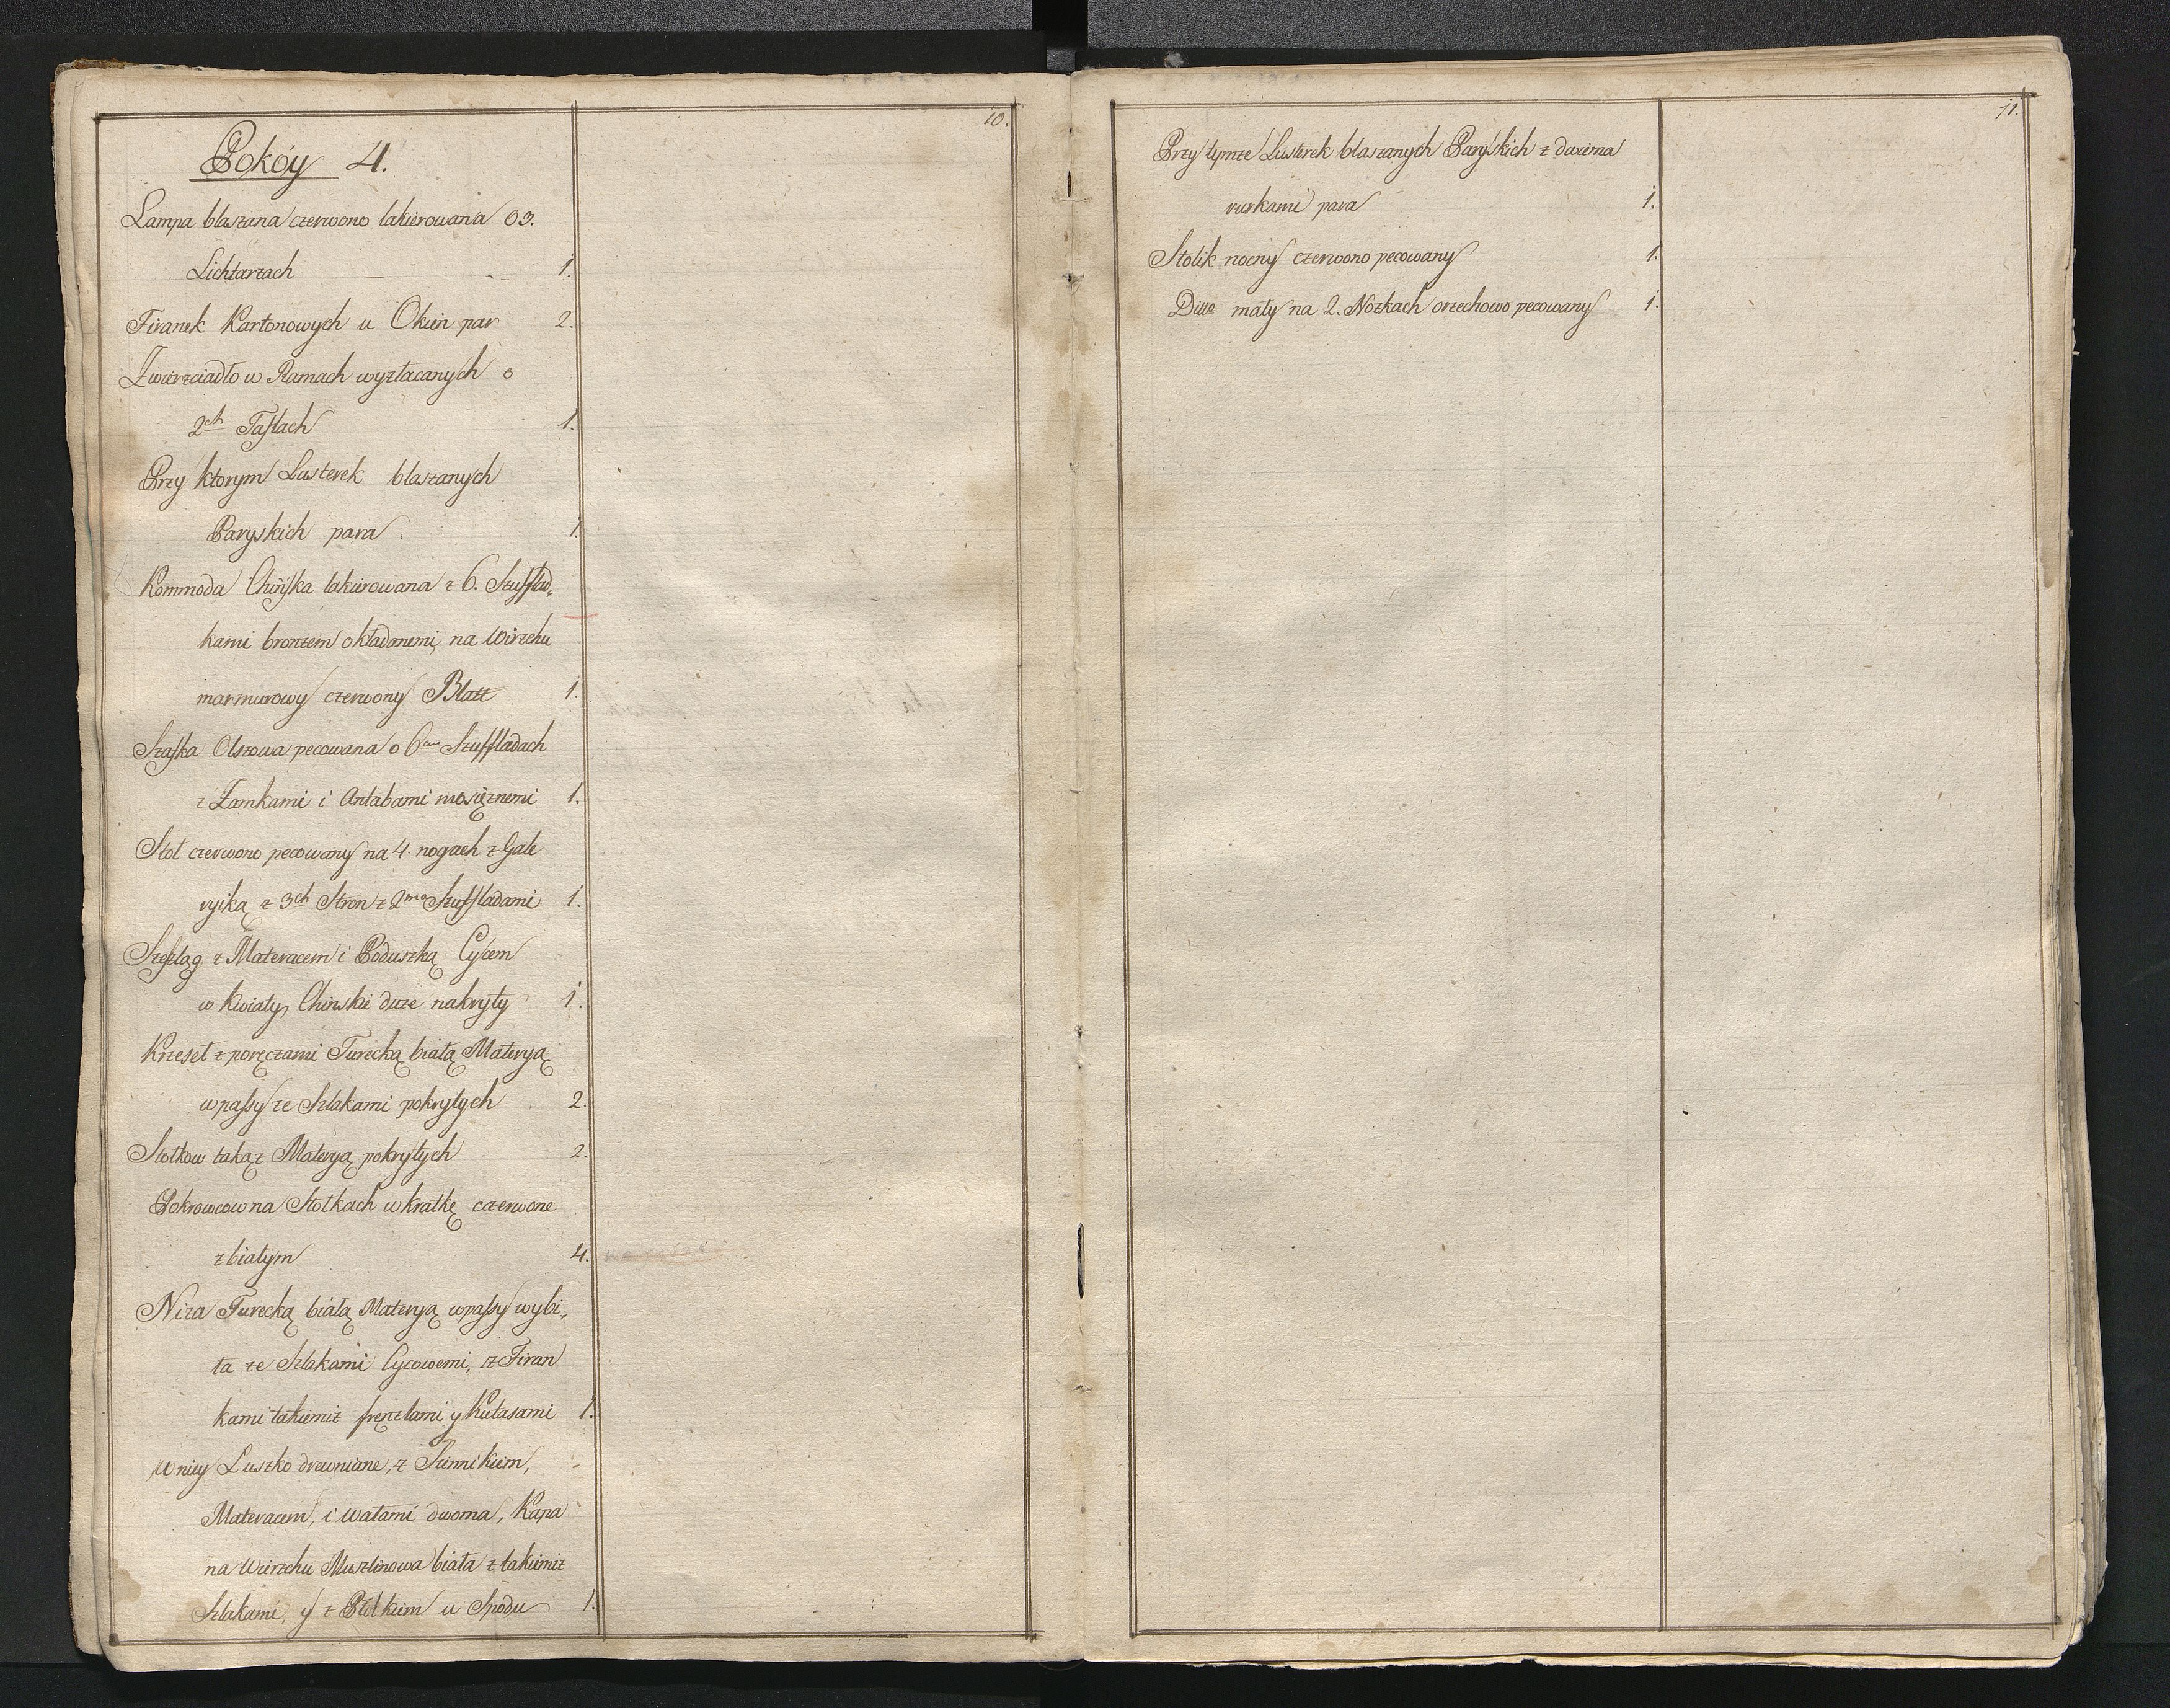 10.
Pokóy 4.
Lampa blaszana czerwono lakierowana o 3.
Lichtarzach 1.
Firanek Kartonowych u Okien par 2.
Zwierzciadło w Ramach wyzłacanych o
2ch Taflach 1.
Przy ktorym Lusterek blaszanych
Paryskich para 1.
Kommoda Chińska lakierowana z 6. Szufflad,
kami bronzem okładanemi, na Wierzchu
marmurowy czerwony Blatt 1.
Szafka Olszowa pecowana o 6ciu Szuffladach
z Zamkami i Antabami mosiężnemi 1.
Stoł czerwono pecowany na 4. nogach z Gale
ryiką z 3ch Stron z 2ma Szuffladami 1.
Szeszląg z Materacem i Poduszką Cycem
w Kwiaty Chinskie duze nakryty 1.
Krzeseł z poręczami Turecką białą Materyą
w passy ze Szlakami pokrytych 2.
Stołkow takąz Materyą pokrytych 2.
Pokrowcow na Stołkach w kratkę czerwone
z białym 4.
Niza Turecką białą Materyą w passy wybi,
ta ze Szlakami Cycowemi, z Firan
kami takiemiz frenzlami y Kutasami 1.
W niey Łuszko drewniane, z Siennikiem,
Materacem, i wałami dwoma, Kapa
na Wierzchu Muszlinowa biała z takiemiz
Szlakami, y z Płotkiem u Spodu 1.
11.
Przy tymze Lusterek blaszanych Paryskich z dwiema
rurkami para 1.
Stolik nocny czerwono pecowany 1.
Ditto mały na 2. Nozkach orzechowo pecowany 1.